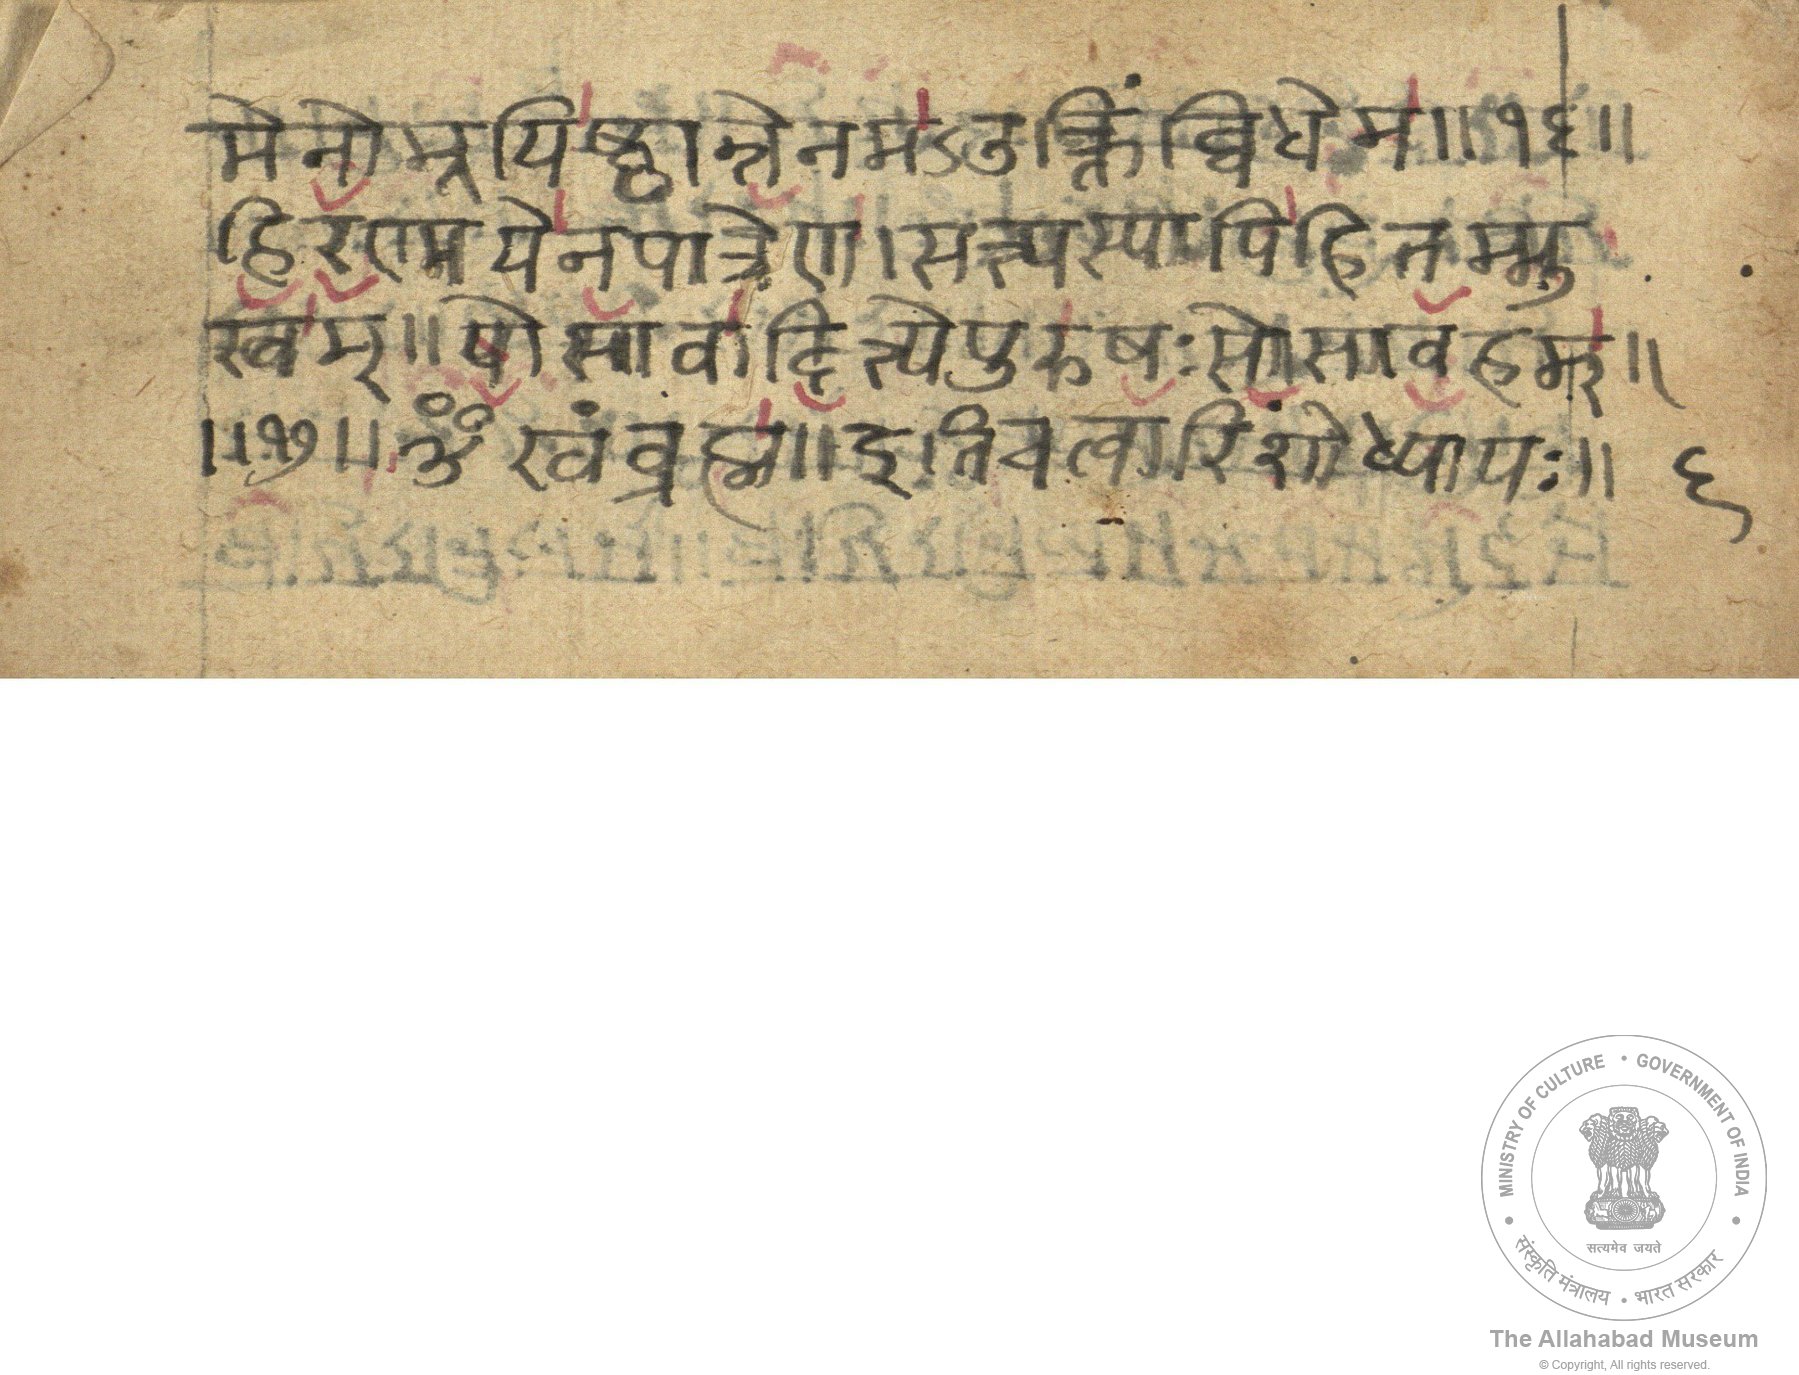 मेनोभूयिष्ठान्तेनमऽउक्तिंव्विधेम॥१६॥
हिरण्मयेनपात्रेण।सत्त्यस्यापिहितम्मु
खम्॥षोसावादित्त्येपुरुषःसोसावहम्॥
॥१७॥ॐखंब्रह्म॥इतिचत्वारिंशोध्यायः॥
६
MINISTRY OF CULTURE • GOVERNMENT OF INDIA
सत्यमेव जयते
संस्कृति मंत्रालय • भारत सरकार
The Allahabad Museum
© Copyright, All rights reserved.